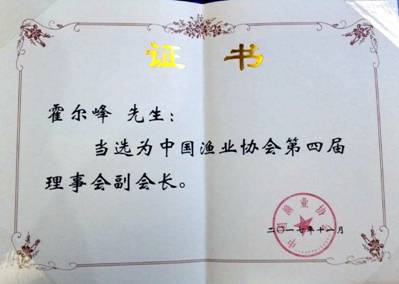 证 书
霍尔峰 先生：
当选为中国渔业协会第四届
理事会副会长。
中国渔业协会
二〇一七年十一月